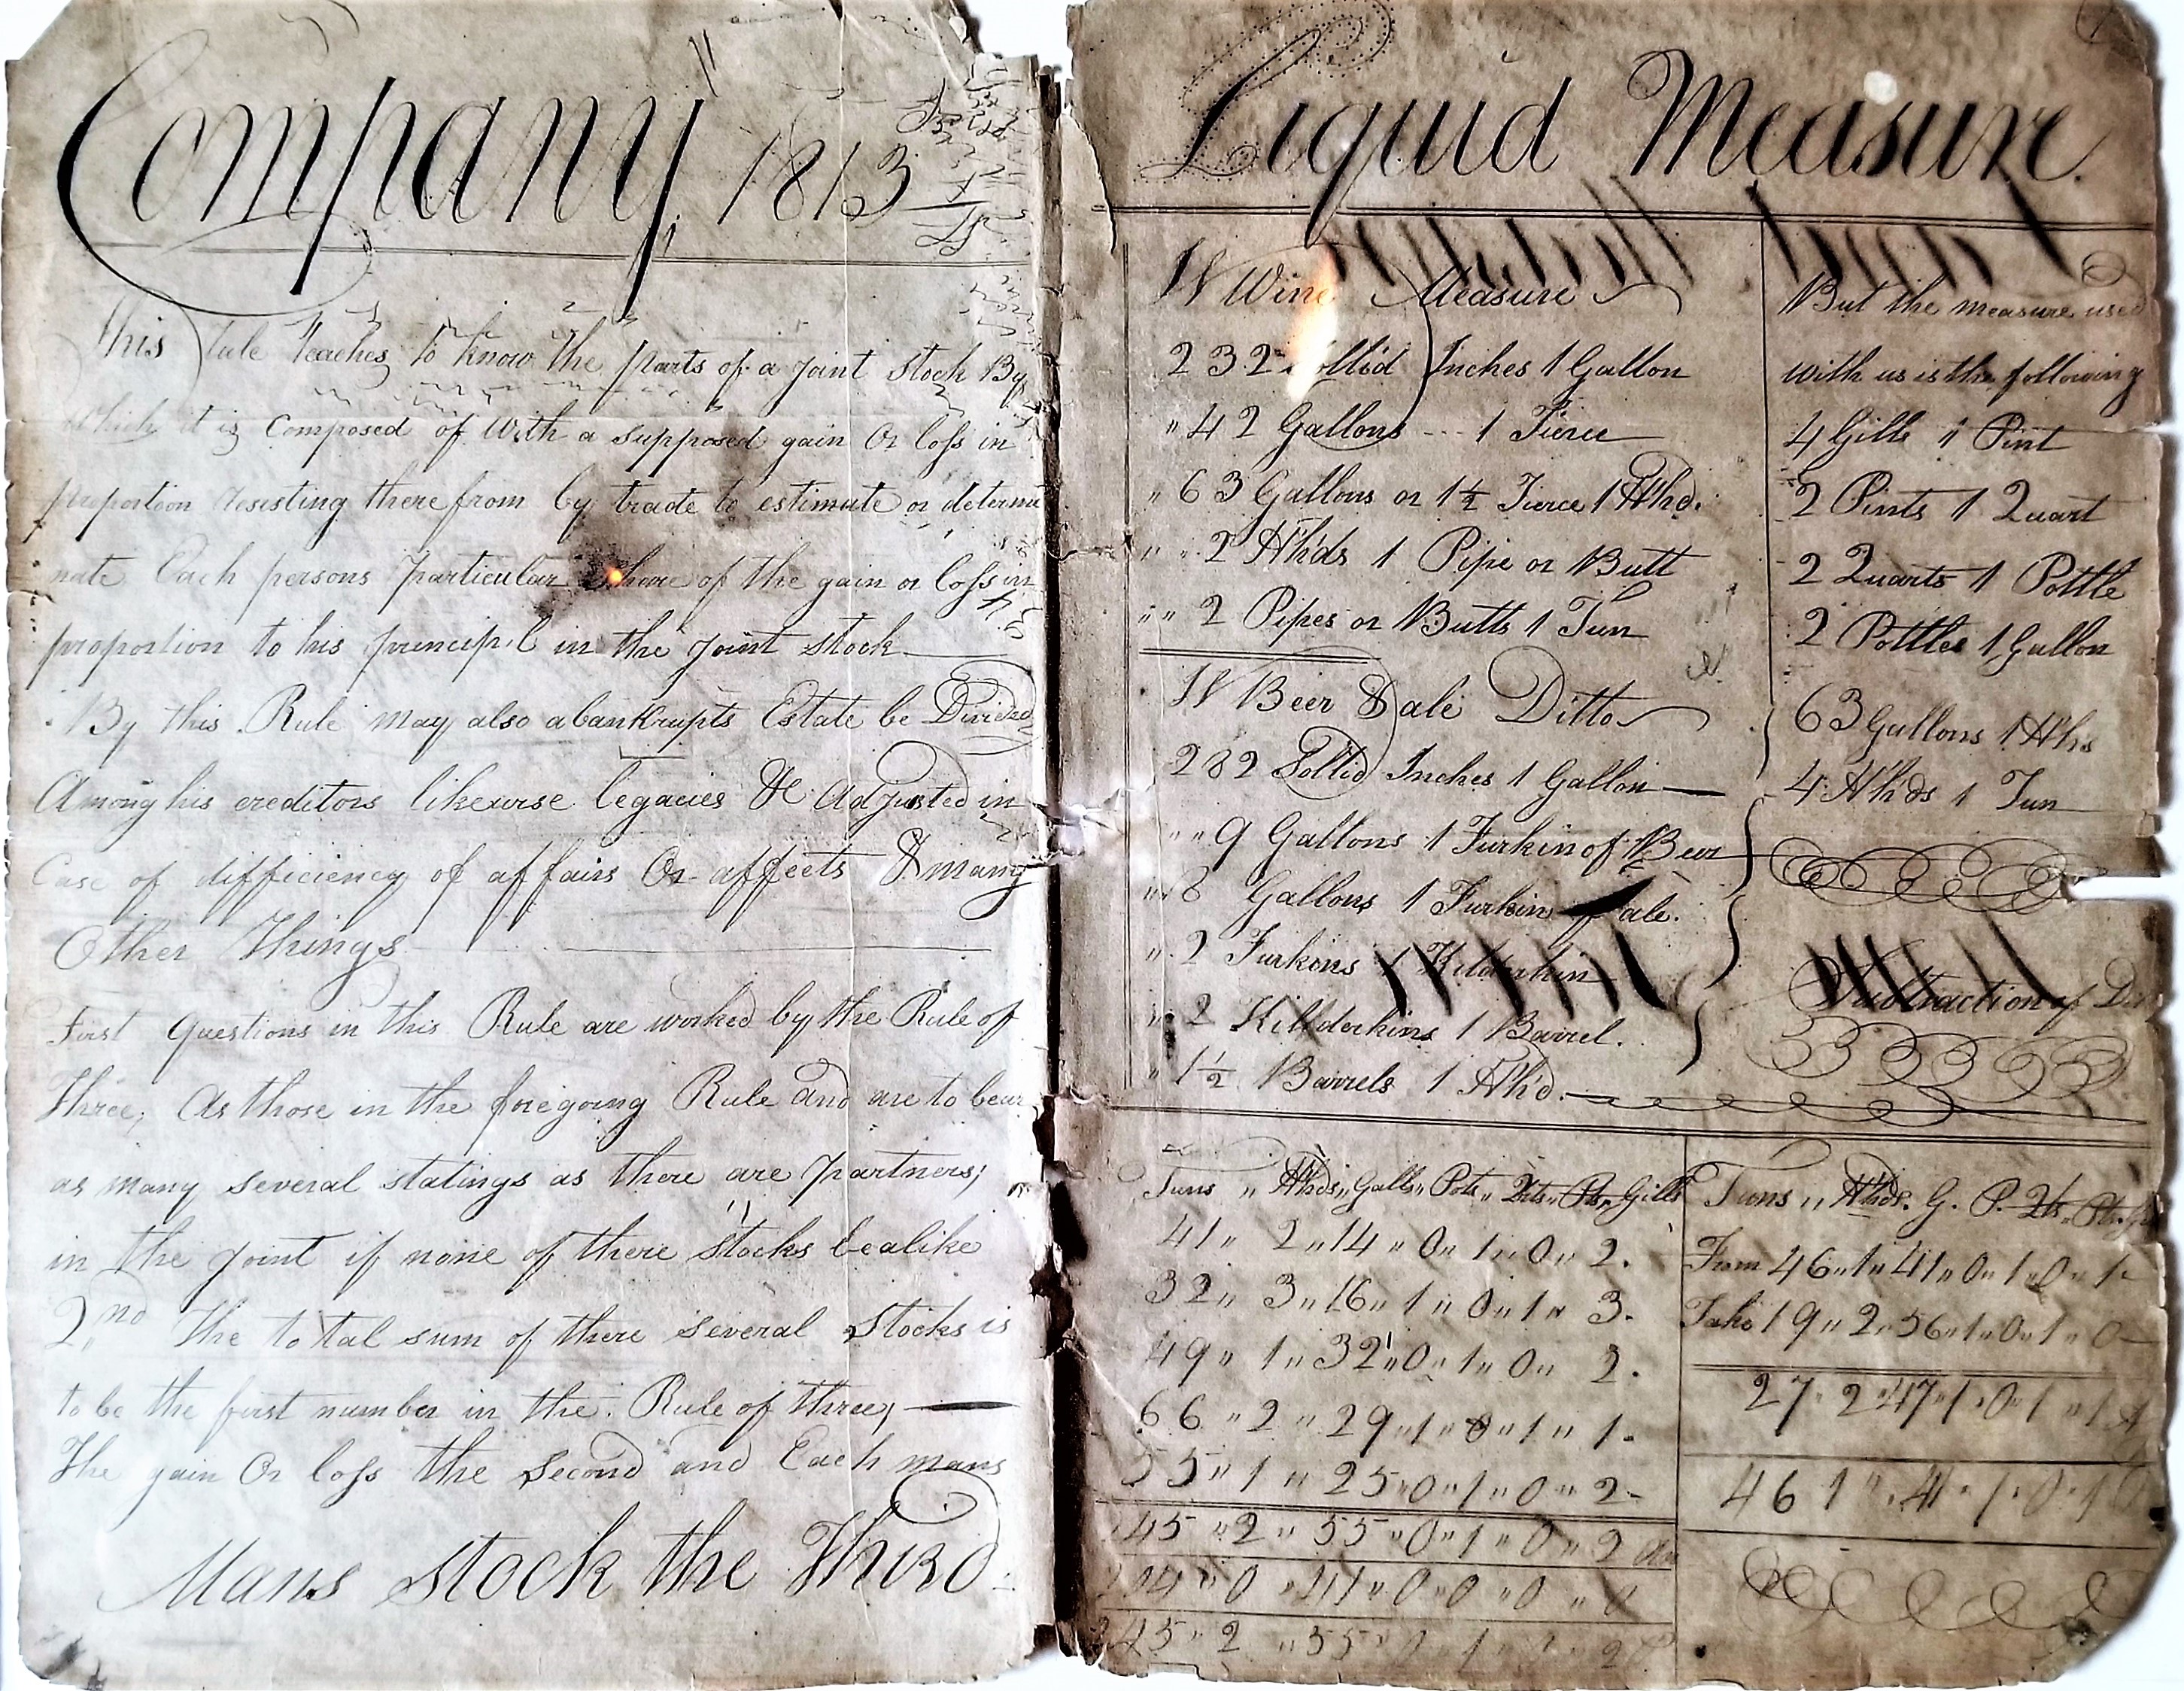 Company, 1813
This Rule teaches to know the parts of a joint stock By
which it is Composed of With a supposed gain Or loss in
proportion resisting there from by trade to estimate or determi
nate Each persons particular Share of the gain or loss in
proportion to his principel in the joint stock
By this Rule may also a bankrupts Estate be Divided
Among his creditors likewise legacies &c Adjusted in
Case of difficiency of affairs Or affects & many
Other Things
First Questions in this Rule are worked by the Rule of
Three; As those in the foregoing Rule and are to bear
as many several statings as there are partners;
in the joint if none of there stocks be alike
2nd The to tal sum of there several Stocks is
to be the first number in the Rule of three;
The gain Or loss the Second and Each mans
Mans stock the Third
Liquid Measure.
Wine Measure
232 Sollid Inches 1 Gallon
" 42 Gallons -- 1 Tierce
" 63 Gallons or 1½ Tierce 1 Hhd.
" " 2 Hhds 1 Pipe or Butt
" " 2 Pipes or Butts 1 Tun
Beer & ale Ditto
282 Sollid Inches 1 Gallon
" " 9 Gallons 1 Furkin of Beer
" 8 Gallons 1 Furkin of ale.
" 2 Furkins 1 Kilderkin
" 2 Killderkins 1 Barrel.
" 1½ Barrels 1 Hhd.
But the measure used
with us is the following
4 Gills 1 Pint
2 Pints 1 Quart
2 Quarts 1 Pottle
2 Pottles 1 Gallon
63 Gallons 1 Hhs
4 Hhds 1 Tun
Subtraction of
Tuns " Hhds " Galls " Pots " Qts " Pts " Gills
41 " 2 " 14 " 0 " 1 " 0 " 2.
32 " 3 " 16 " 1 " 0 " 1 " 3.
49 " 1 " 32 " 0 " 1 " 0 " 2.
66 " 2 " 29 " 1 " 0 " 1 " 1.
55 " 1 " 25 " 0 " 1 " 0 " 2-
245 " 2 " 55 " 0 " 1 " 0 " 2
204 " 0 " 41 " 0 " 0 " 0 " 0
245 " 2 " 55 " 0 " 1 " 0 " 2
Tuns " Hhds. G. P. Qts " Pts.
From 46 " 1 " 41 " 0 " 1 " 0 " 1-
Take 19 " 2 " 56 " 1 " 0 " 1 " 0-
27 " 2 " 47 " 1 " 0 " 1 " 1
46 1 " 41 " 1 " 0 " 1